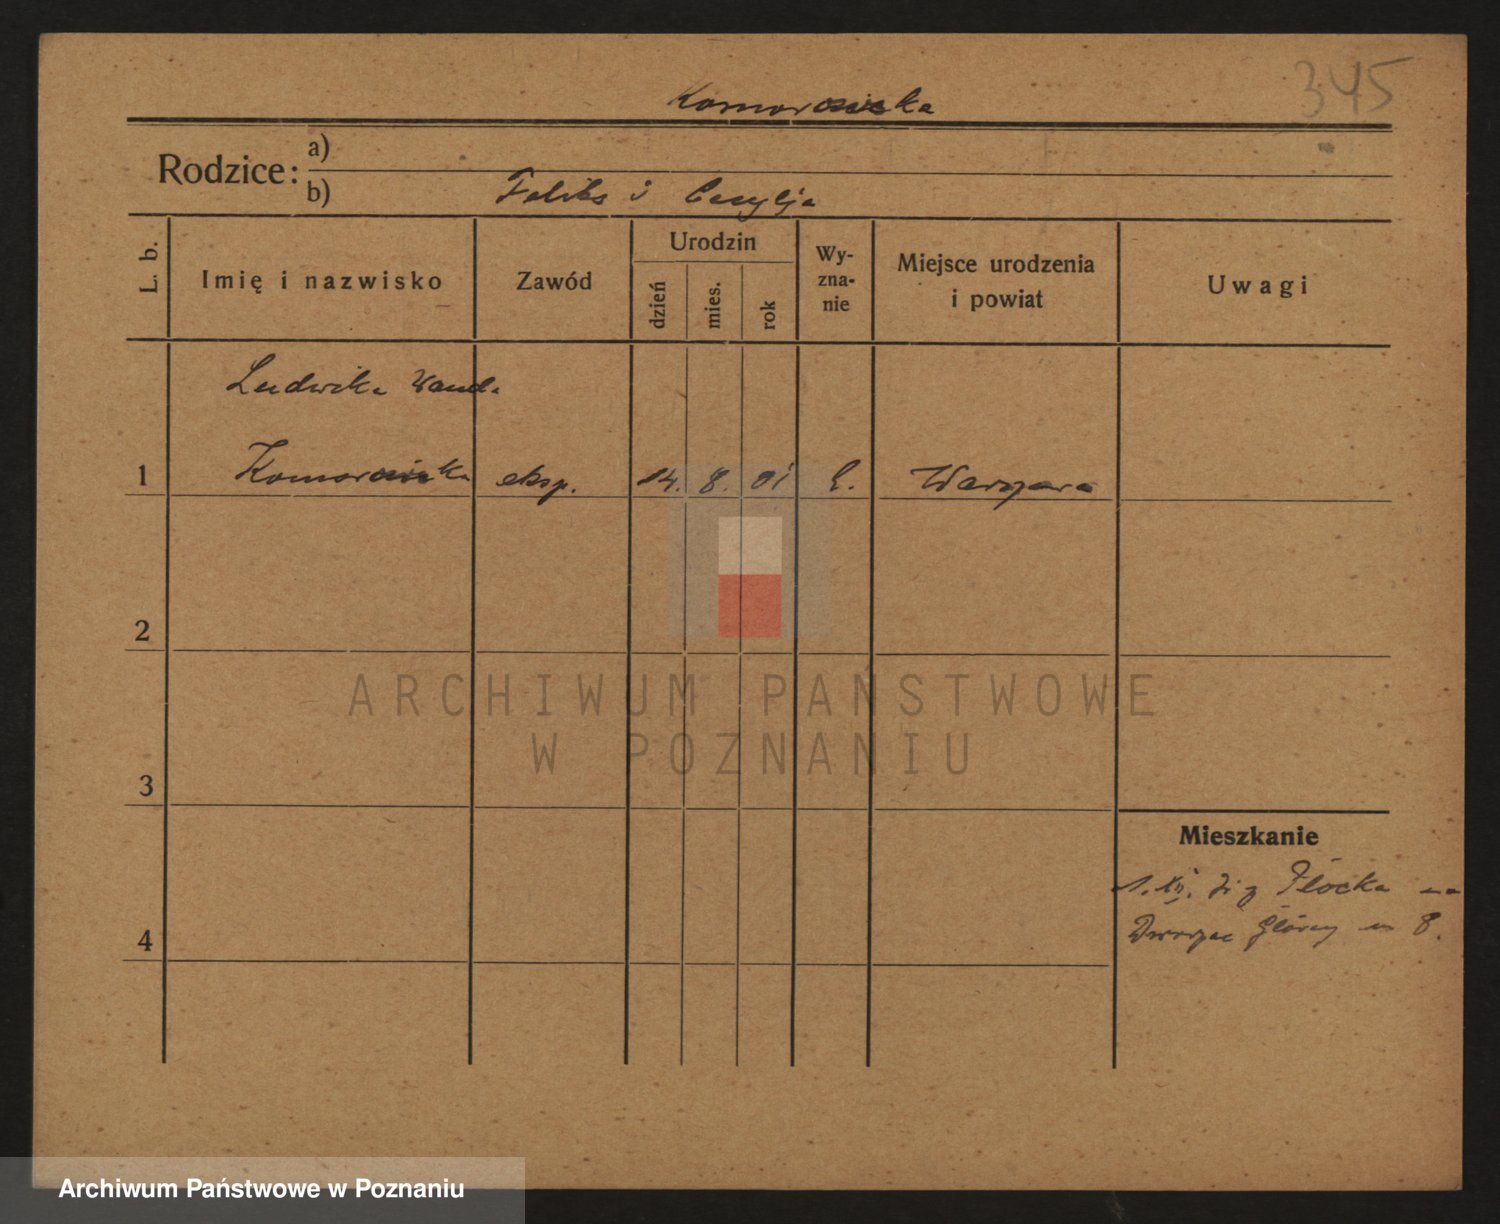 345
Komorowska
Rodzice:
a)
b) Feliks i Cecylja
L. b.
Imię i nazwisko
Zawód
Urodzin
dzień
mies.
rok
Wy-
zna-
nie
Miejsce urodzenia
i powiat
Uwagi
Ludwika Wanda
1 Komorowska eksp. 14. 8. 01 Warszawa
2
3
4
ARCHIWUM PAŃSTWOWE
W POZNANIU
Mieszkanie
1. XII. z Płocka na
Dworzec Główny 8.
Archiwum Państwowe w Poznaniu